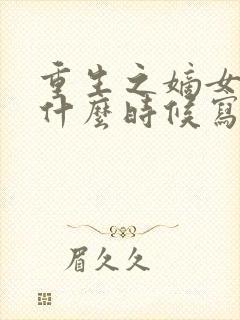 重生之嫡女
什麼時候寫
眉久久